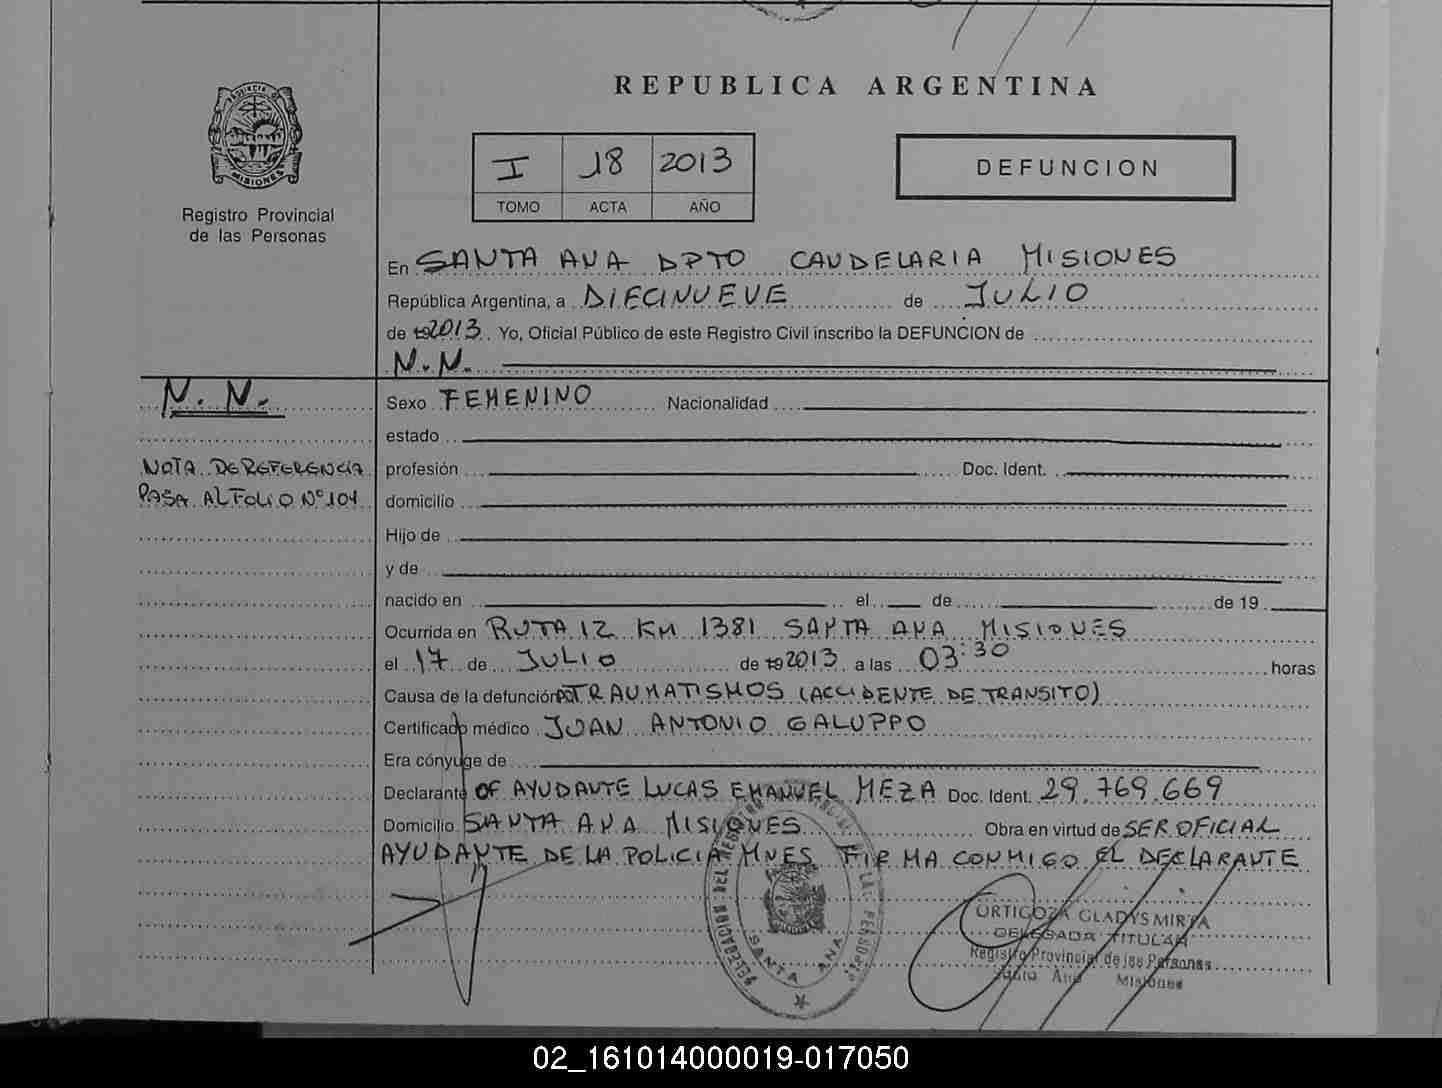 REPUBLICA ARGENTINA
PROVINCIA DE
MISIONES
Registro Provincial
de las Personas
I 18 2013
TOMO ACTA AÑO
DEFUNCION
En SANTA ANA DPTO CANDELARIA MISIONES
República Argentina, a DIECINUEVE de JULIO
de 19 2013 Yo, Oficial Público de este Registro Civil inscribo la DEFUNCION de
N.N.
N. N.
NOTA DE REFERENCIA
PASA AL FOLIO Nº 101
Sexo FEMENINO Nacionalidad
estado
profesión Doc. Ident.
domicilio
Hijo de
y de
nacido en el de de 19
Ocurrida en RUTA 12 KM 1381 SANTA ANA MISIONES
el 17 de JULIO de 19 2013 a las 03:30 horas
Causa de la defunción TRAUMATISMOS (ACCIDENTE DE TRANSITO)
Certificado médico JUAN ANTONIO GALUPPO
Era cónyuge de
Declarante OF AYUDANTE LUCAS EMANUEL MEZA Doc. Ident. 29.769.669
Domicilio SANTA ANA MISIONES Obra en virtud de SER OFICIAL
AYUDANTE DE LA POLICIA MNES FIRMA CONMIGO EL DECLARANTE
DELEGACION DEL REGISTRO PROVINCIAL DE LAS PERSONAS
SANTA ANA
ORTIGOZA GLADYS MIRTA
DELEGADA TITULAR
Registro Provincial de las Personas
Santa Ana Misiones
02_161014000019-017050